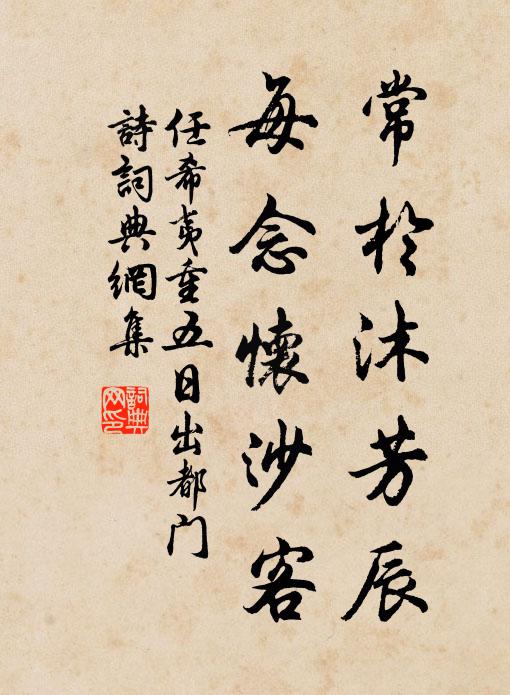 常於沐芳辰
每念懷沙客
任希夷重五日出都门
詩詞典網集
詞典
网印